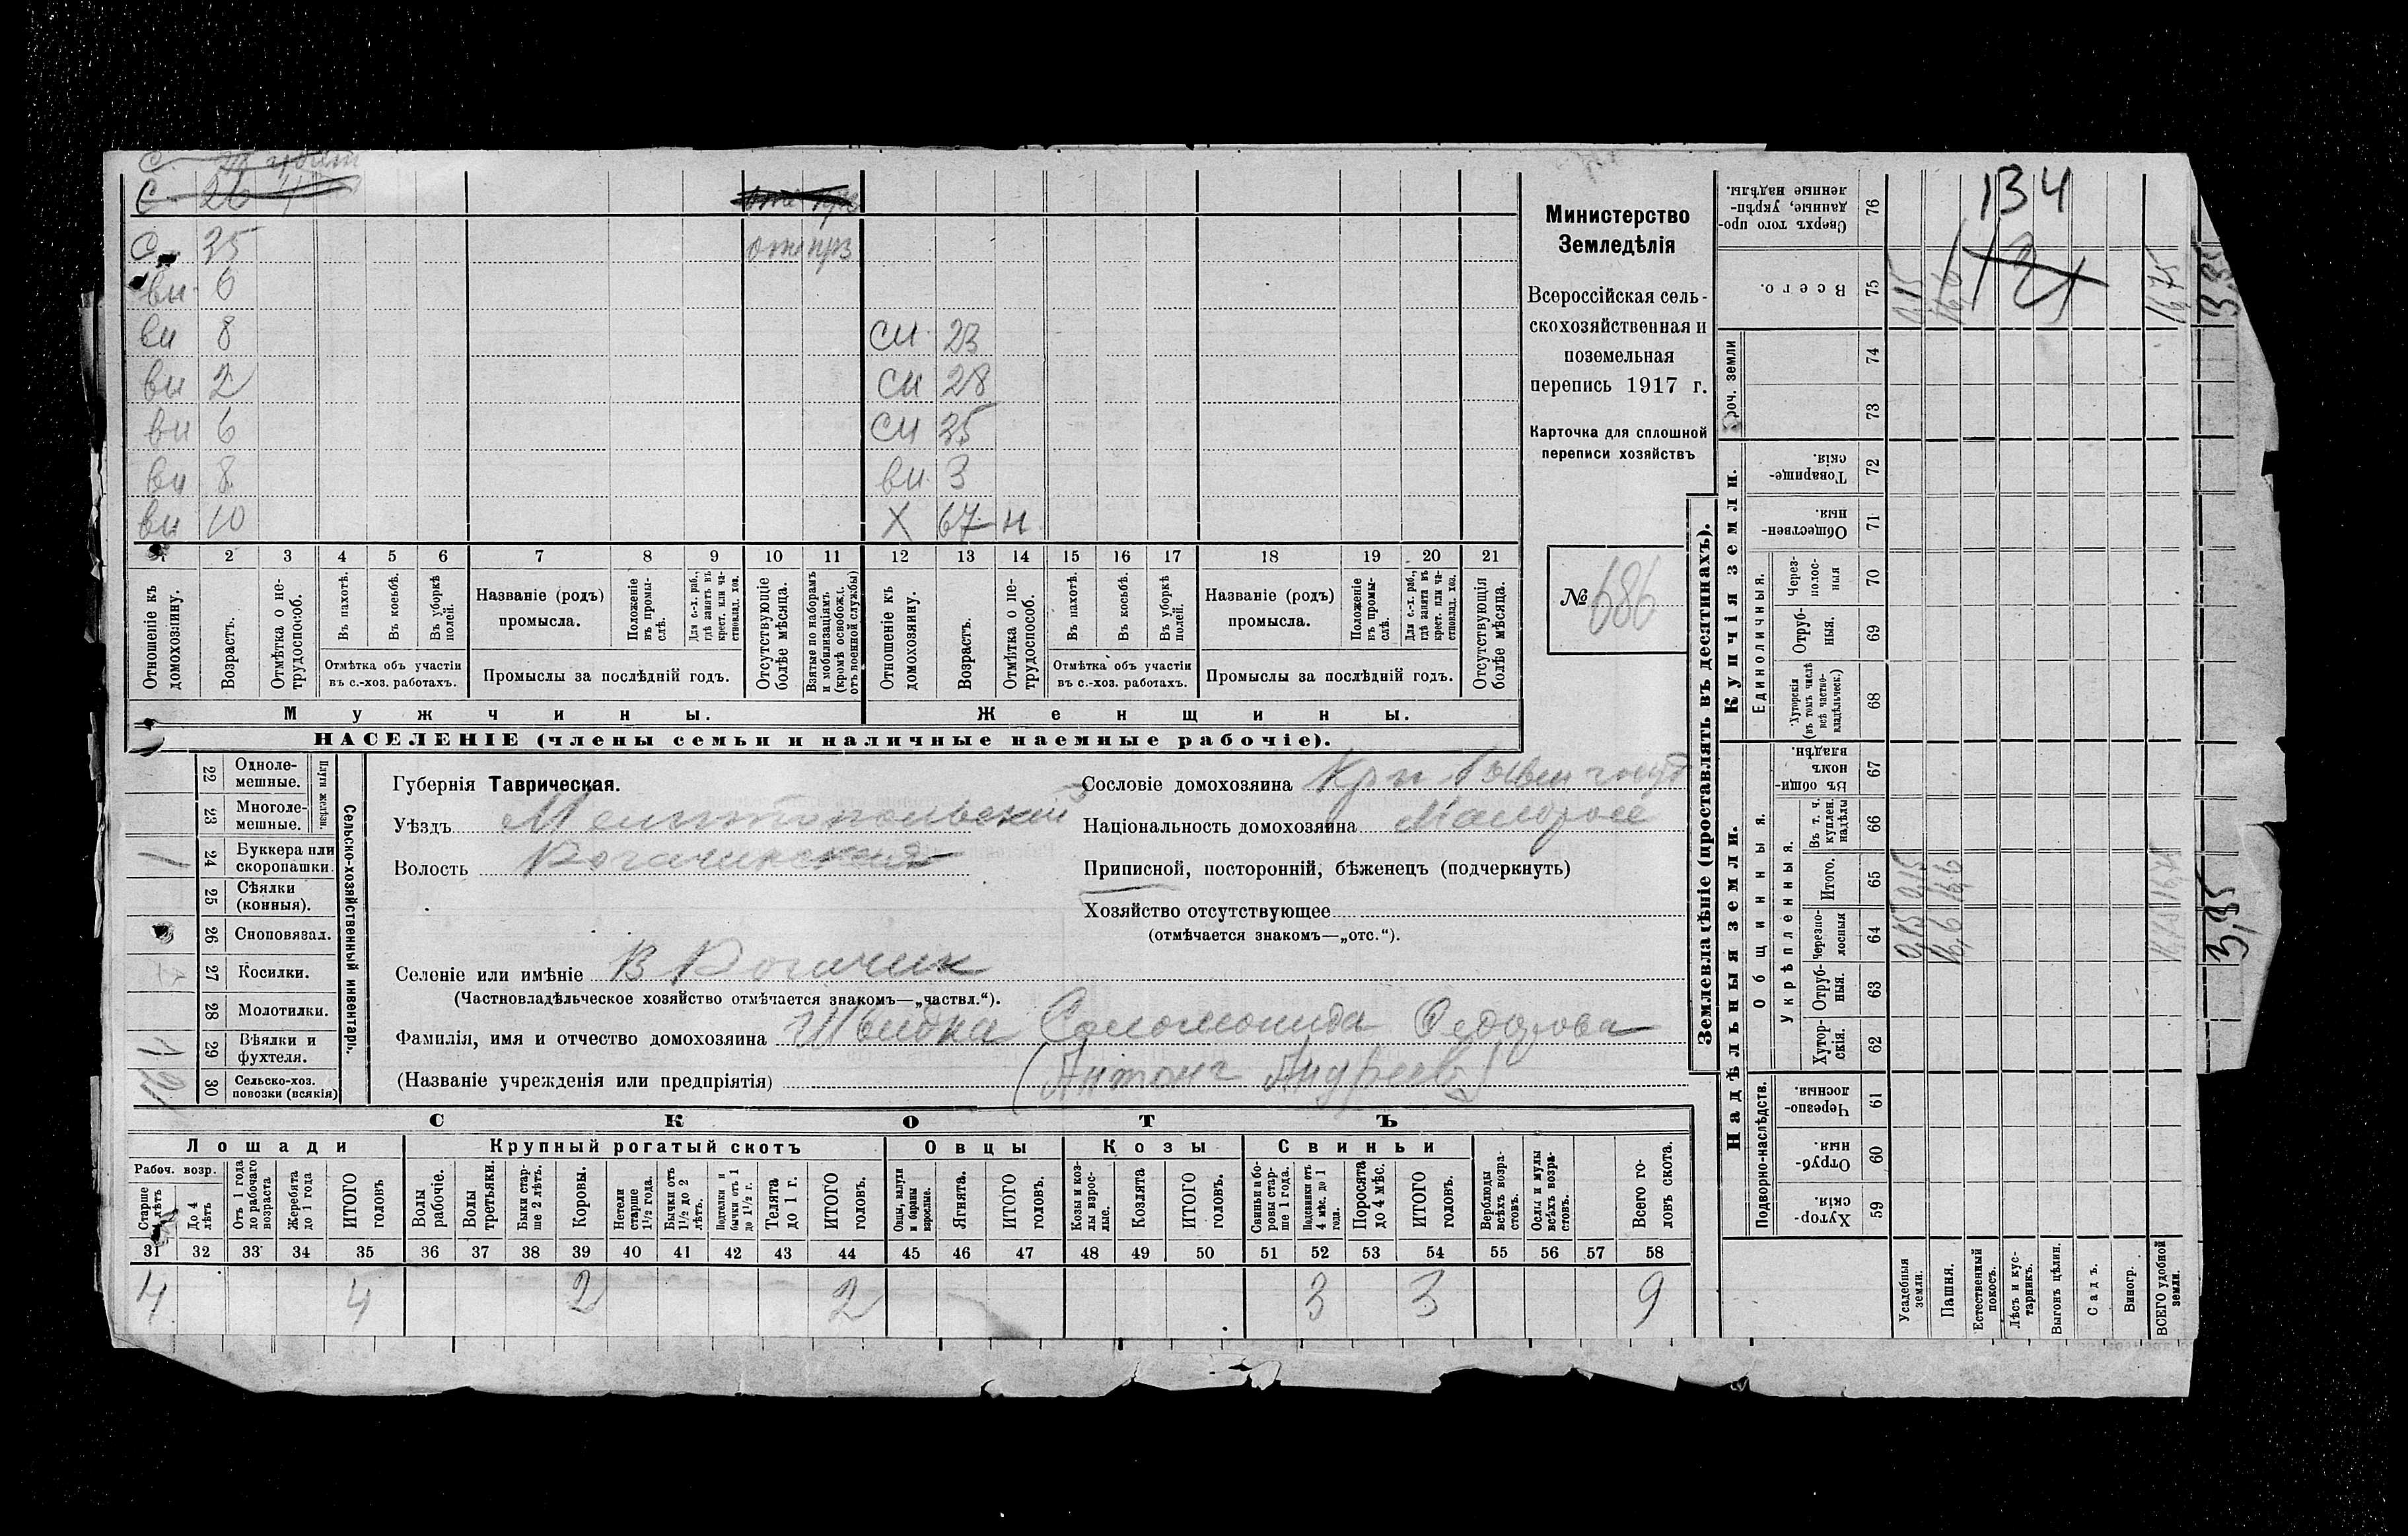 С 26
С 35 отс прз
вн 6
вн 8 сн 23
вн 2 сн 28
вн 6 сн 35
вн 8 вн 3
вн 10 X 67 н
1 2 3 4 5 6 7 8 9 10 11 12 13 14 15 16 17 18 19 20 21
Отношеніе къ домохозяину.
Возрастъ.
Отмѣтка о нетрудоспособ.
Въ пахотѣ.
Въ косьбѣ.
Въ уборкѣ полей.
Отмѣтка объ участіи
въ с.-хоз. работахъ.
Названіе (родъ)
промысла.
Положеніе въ промыслѣ.
Для с.-х. раб., гдѣ занятъ въ крест. или частновлад. хоз.
Промыслы за послѣдній годъ.
Отсутствующіе болѣе мѣсяца.
Взятые по наборамъ и мобилизаціямъ (кромѣ освобожд. отъ военной службы)
Отношеніе къ домохозяину.
Возрастъ.
Отмѣтка о нетрудоспособ.
Въ пахотѣ.
Въ косьбѣ.
Въ уборкѣ полей.
Отмѣтка объ участіи
въ с.-хоз. работахъ.
Названіе (родъ)
промысла.
Положеніе въ промыслѣ.
Для с.-х. раб., гдѣ занята въ крест. или частновлад. хоз.
Промыслы за послѣдній годъ.
Отсутствующія болѣе мѣсяца.
Мужчины.
Женщины.
НАСЕЛЕНІЕ (члены семьи и наличные наемные рабочіе).
Министерство
Земледѣлія
Всероссійская сель-
скохозяйственная и
поземельная
перепись 1917 г.
Карточка для сплошной
переписи хозяйствъ
№ 686
Плуги желѣзн.
22 Одноле-
мешные.
23 Многоле-
мешные.
24 Буккера или
скоропашки. 1
25 Сѣялки
(конныя).
26 Сноповязал.
27 Косилки.
28 Молотилки.
29 Вѣялки и
фухтеля. 1
30 Сельско-хоз.
повозки (всякія)
Сельско-хозяйственный инвентарь.
Губернія Таврическая.
Уѣздъ Мелитопольскій
Волость Рогачинская
Селеніе или имѣніе В Рогачик
(Частновладѣльческое хозяйство отмѣчается знакомъ—„частвл.“).
Фамилія, имя и отчество домохозяина Швидка Соломонида Федорова
(Названіе учрежденія или предпріятія) (Антонъ Андреевъ)
Сословіе домохозяина Крн
Національность домохозяина Малоросс
Приписной, посторонній, бѣженец (подчеркнуть)
Хозяйство отсутствующее
(отмѣчается знакомъ—„отс.“).
СКОТЪ
Лошади Крупный рогатый скотъ Овцы Козы Свиньи
Рабоч. возр.
Старше 4 лѣтъ
До 4 лѣтъ
Отъ 1 года до рабочаго возраста
Жеребята до 1 года
ИТОГО головъ
Волы рабочіе.
Волы третьяки.
Быки старше 2 лѣтъ.
Коровы.
Нетели старше 1½ года.
Бычки отъ 1½ до 2 лѣтъ.
Подтелки и бычки отъ 1 до 1½ г.
Телята до 1 г.
ИТОГО головъ.
Овцы, валухи и бараны взрослые.
Ягнята.
ИТОГО головъ.
Козы и козлы взрослые.
Козлята
ИТОГО головъ.
Свиньи и боровы старше 1 года.
Подсвинки отъ 4 мѣс. до 1 года.
Поросята до 4 мѣс.
ИТОГО головъ.
Верблюды всѣхъ возрастовъ.
Ослы и мулы всѣхъ возрастовъ.
Всего головъ скота.
31 32 33 34 35 36 37 38 39 40 41 42 43 44 45 46 47 48 49 50 51 52 53 54 55 56 57 58
4 4 2 2 3 3 9
Землевладѣніе (проставлять въ десятинахъ).
Надѣльныя земли. Купчія земли.
Проч. земли
Подворно-наслѣдств.
Общинныя.
Укрѣпленныя.
Единоличныя.
76 Сверхъ того проданные, укрѣпленные надѣлы.
75 Всего.
74
73
72 Товарищескія.
71 Общественныя.
70 Черезполосныя
69 Отрубныя.
68 Хуторскія (въ томъ числѣ всѣ частновладѣльческ.)
67 Въ общиномъ владѣн.
66 Въ т. ч. куплен. надѣлы
65 Итого.
64 Черезполосныя
63 Отрубныя.
62 Хуторскія.
61 Черезполосныя.
60 Отрубныя.
59 Хуторскія.
Усадебныя земли. 0,15 0,15 0,15
Пашня. 16,6 16,6 16,6
Естественный покосъ.
Лѣсъ и кустарникъ.
Выгонъ цѣлин.
Садъ.
Виногр.
ВСЕГО удобной земли. 16,75 16,75 16,75
134